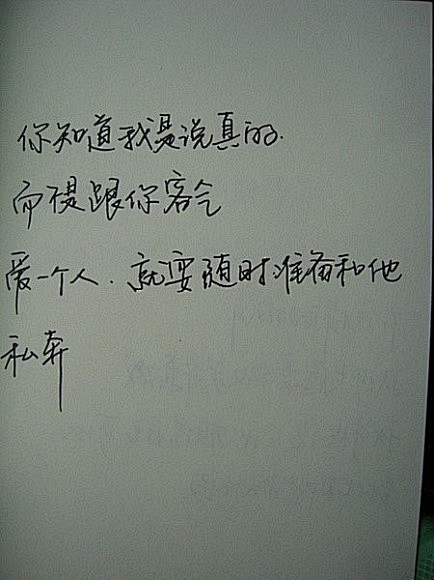 你知道我是说真的.
而是跟你客气
爱一个人.就要随时准备和他
私奔